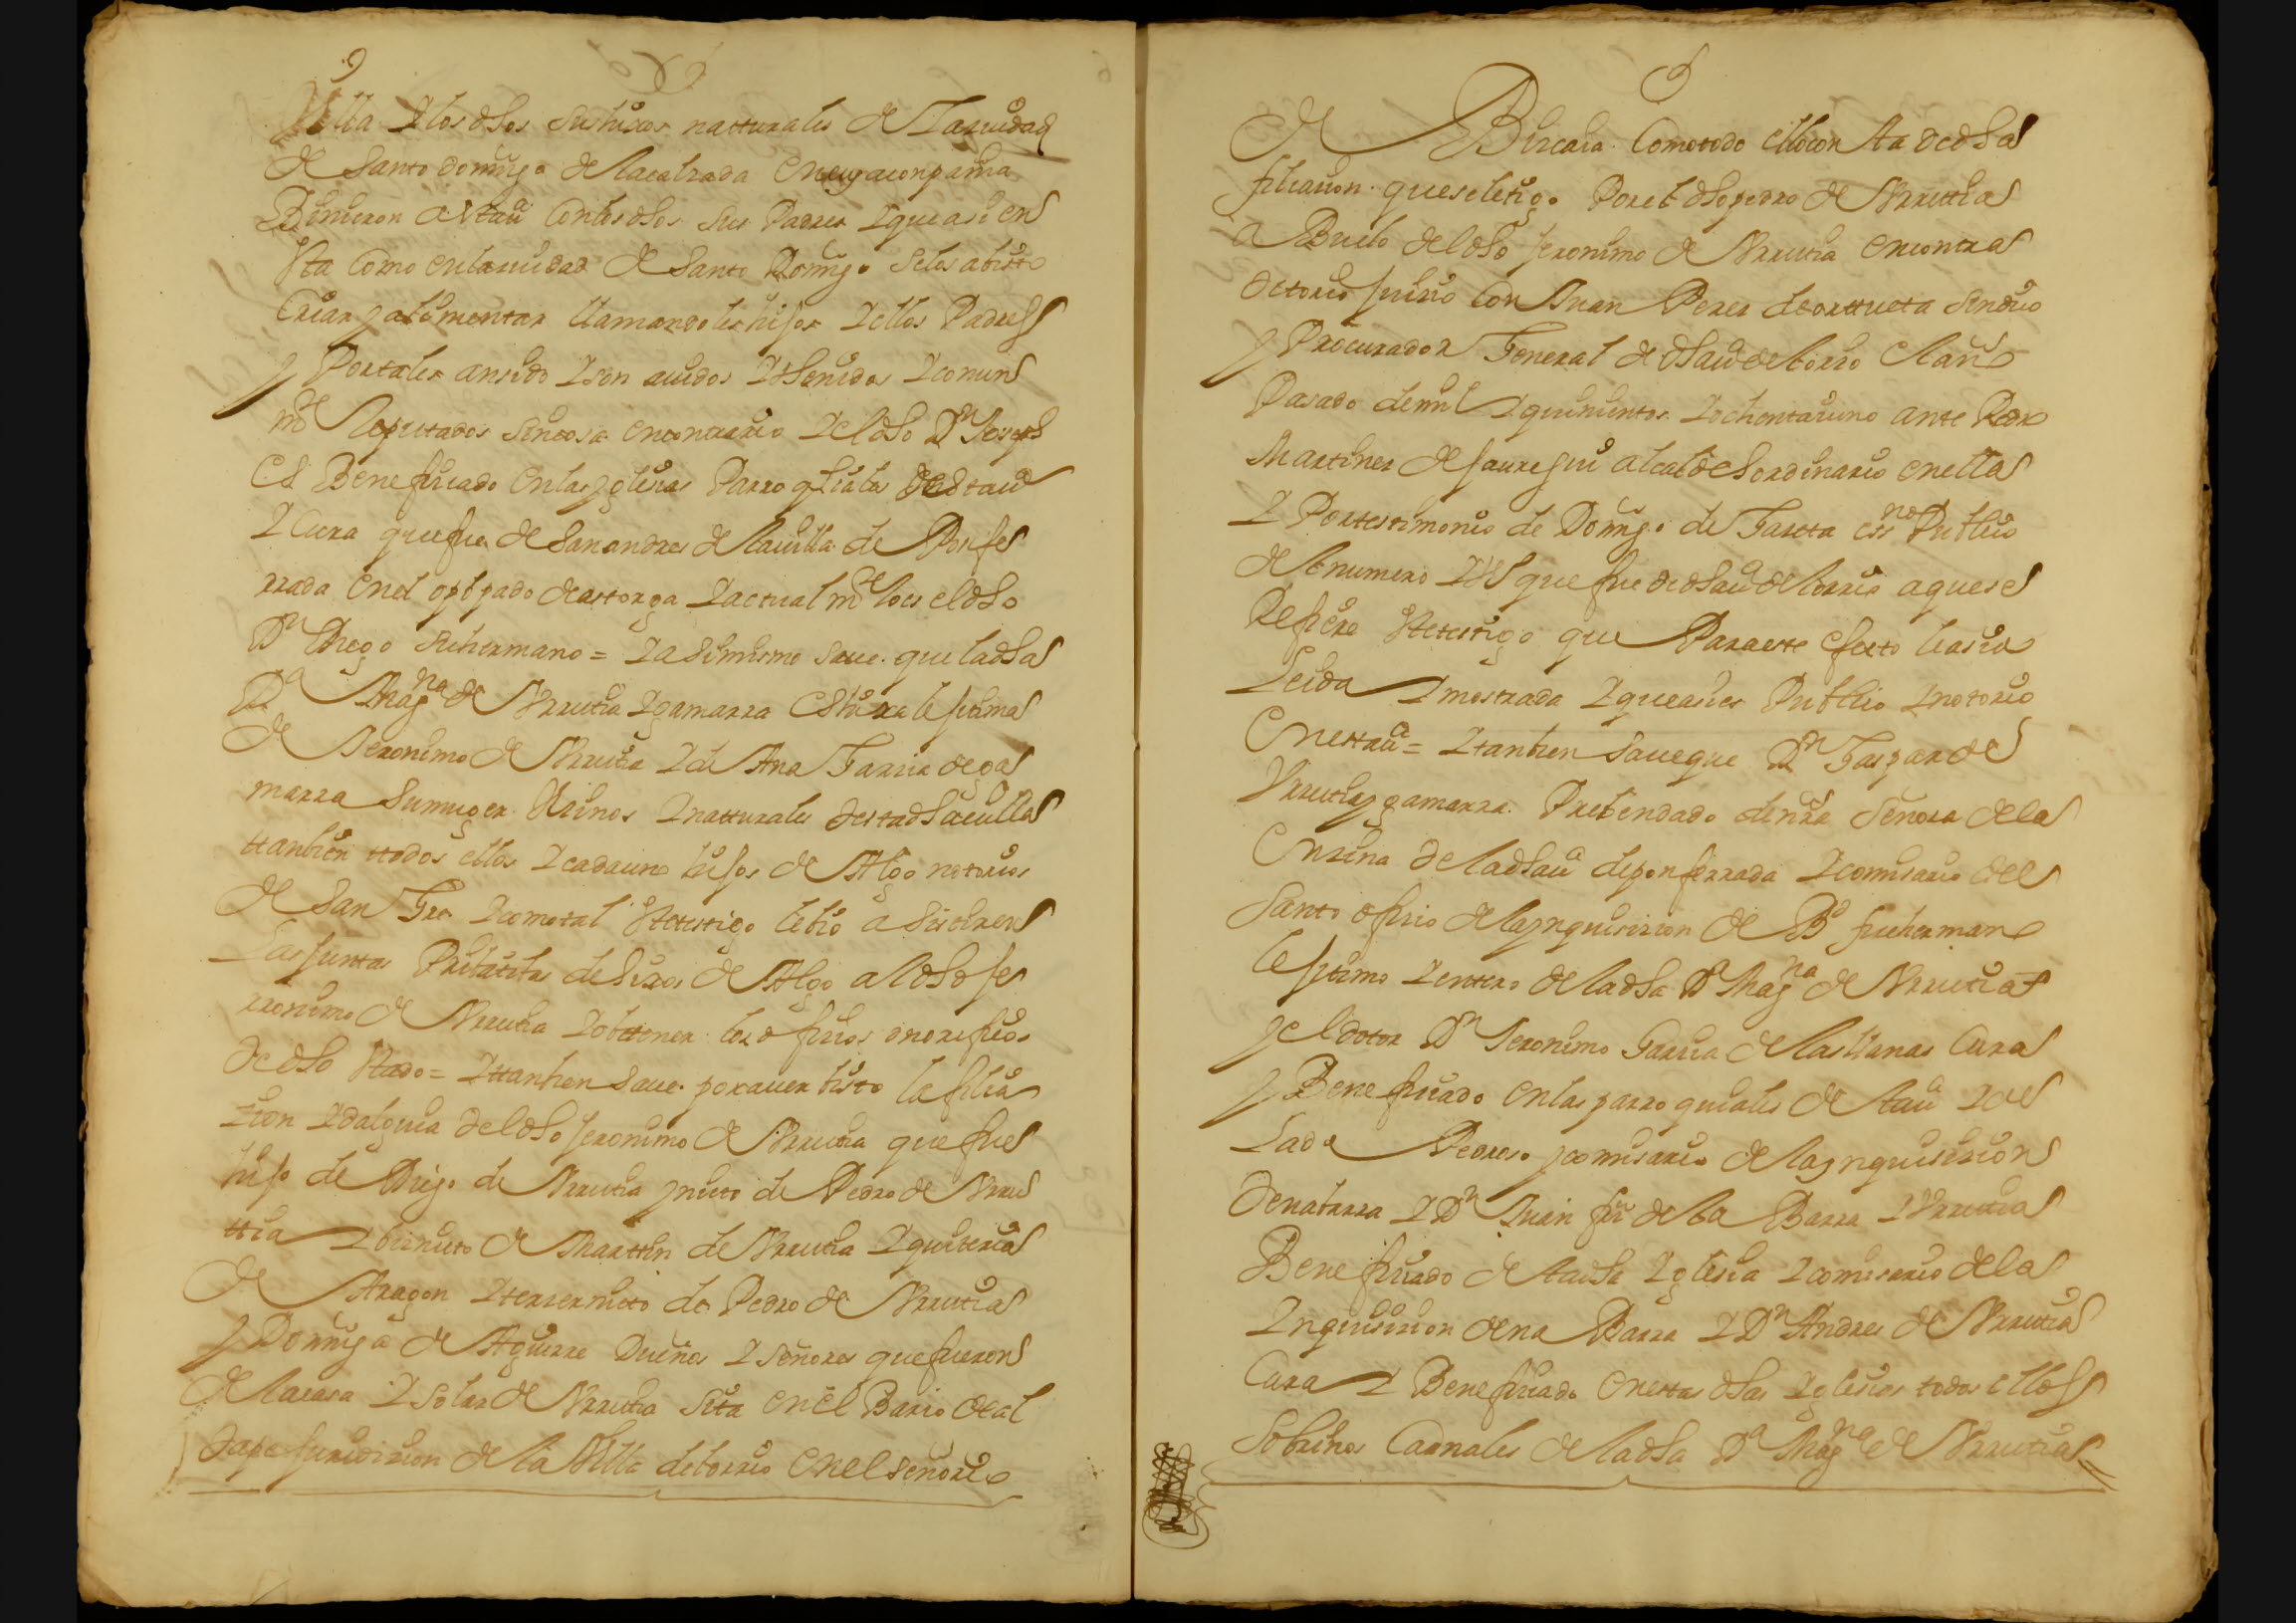 Villa Y los dhos sus hixos natturales de La ciudad
de Santo domingo de la calzada En cuya conpañia
Binieron a Vta villa Con los dhos sus Padres Y que asi en
Vta Como en la ciudad de Santo Domingo se los a bisto
Criar y alimentar llamandoles hijos Y ellos Padres
y Por tales an sido Y son auidos Y thenidos Y comun
mte Reputados sin cosa en contrario Y el dho Dn Joseph
Es Beneficiado En las yglesias Parroquiales desta va
Y Cura que fue de San andres de la uilla de Ponfe
rrada En el opispado de astorga Y actual mte lo es el dho
Dn Diego su hermano = Y a simismo saue que la dha
Da Magna de Vrrutia Y gamarra Es hixa lexitima
de Jeronimo de Vrrutia Y de Ana Garcia de ga
marra su muger Vecinos Y natturales desta dha uilla
ttanbien ttodos ellos Y cada uno hijos de Algo notorios
de San Gre Y como tal Vte testigo le bio a sistir en
Las Juntas Pribatibas de hixos de Algo al dho Je
rronimo de Vrrutia Y obttener los oficios onorificos
de dho Vtado = Y ttanbien saue por auer bisto la filia
cion Y dalguia del dho Jeronimo de Vrrutia que fue
hijo de Diego de Vrrutia y nieto de Pedro de Vrru
ttia Y bisnieto de Marttin de Vrrutia Y quiteria
de Aragon Y tercer nieto de Pedro de Vrrutia
y Dominga de Aguirre Dueños Y señores que fueron
de la casa Y solar de Vrrutia sita en el Bario de al
dape Juridicion de la Villa de lorrio En el señorio
de Bizcaia Como todo ello con sta de dha
filiacion que se letigo Por el dho pedro de Vrruttia
a Buelo del dho Jeronimo de Vrrutia en contra
dictorio Juicio Con Juan Perez de orttueta sindico
y Procurador General de dha va de lorrio El año
Pasado de mil Y quinientos Y ochenta y uno ante Pedro
Martinez de Jauregui alcalde hordinario en ella
Y Por testimonio de Domingo de Garcia essno Publico
del numero que fue de dha va de lorrio a que se
Refiere Vte testigo que Para este efecto le a sido
Leida Y mostrada Y que asi es Publico Y notorio
En esta va = Y tanbien saue que Dn Gaspar de
Vrrutia y gamarra Prebendado de nra Señora de la
Encina de la dha va de ponferrada Y comisario del
Santo oficio de la ynquisicion de Vd fue hermano
lejitimo Y entero de la dha Da Magna de Vrrutia
y el dotor Dn Jeronimo Garcia de las llanas Cura
y Beneficiado En las parroquiales de sta va Y de
Lado Pedroso y comisario de la ynquisicion
de nabarra Y Dn Juan fru de la Barra Y Vrrutia
Beneficiado de sta dha Yglesia Y comisario de la
Ynquisicion de na Barra Y Dn Andres de Vrrutia
Cura Y Beneficiado En estas dhas Yglesias todos ellos
Sobrinos Carnales de la dha Da Magna de Vrrutia